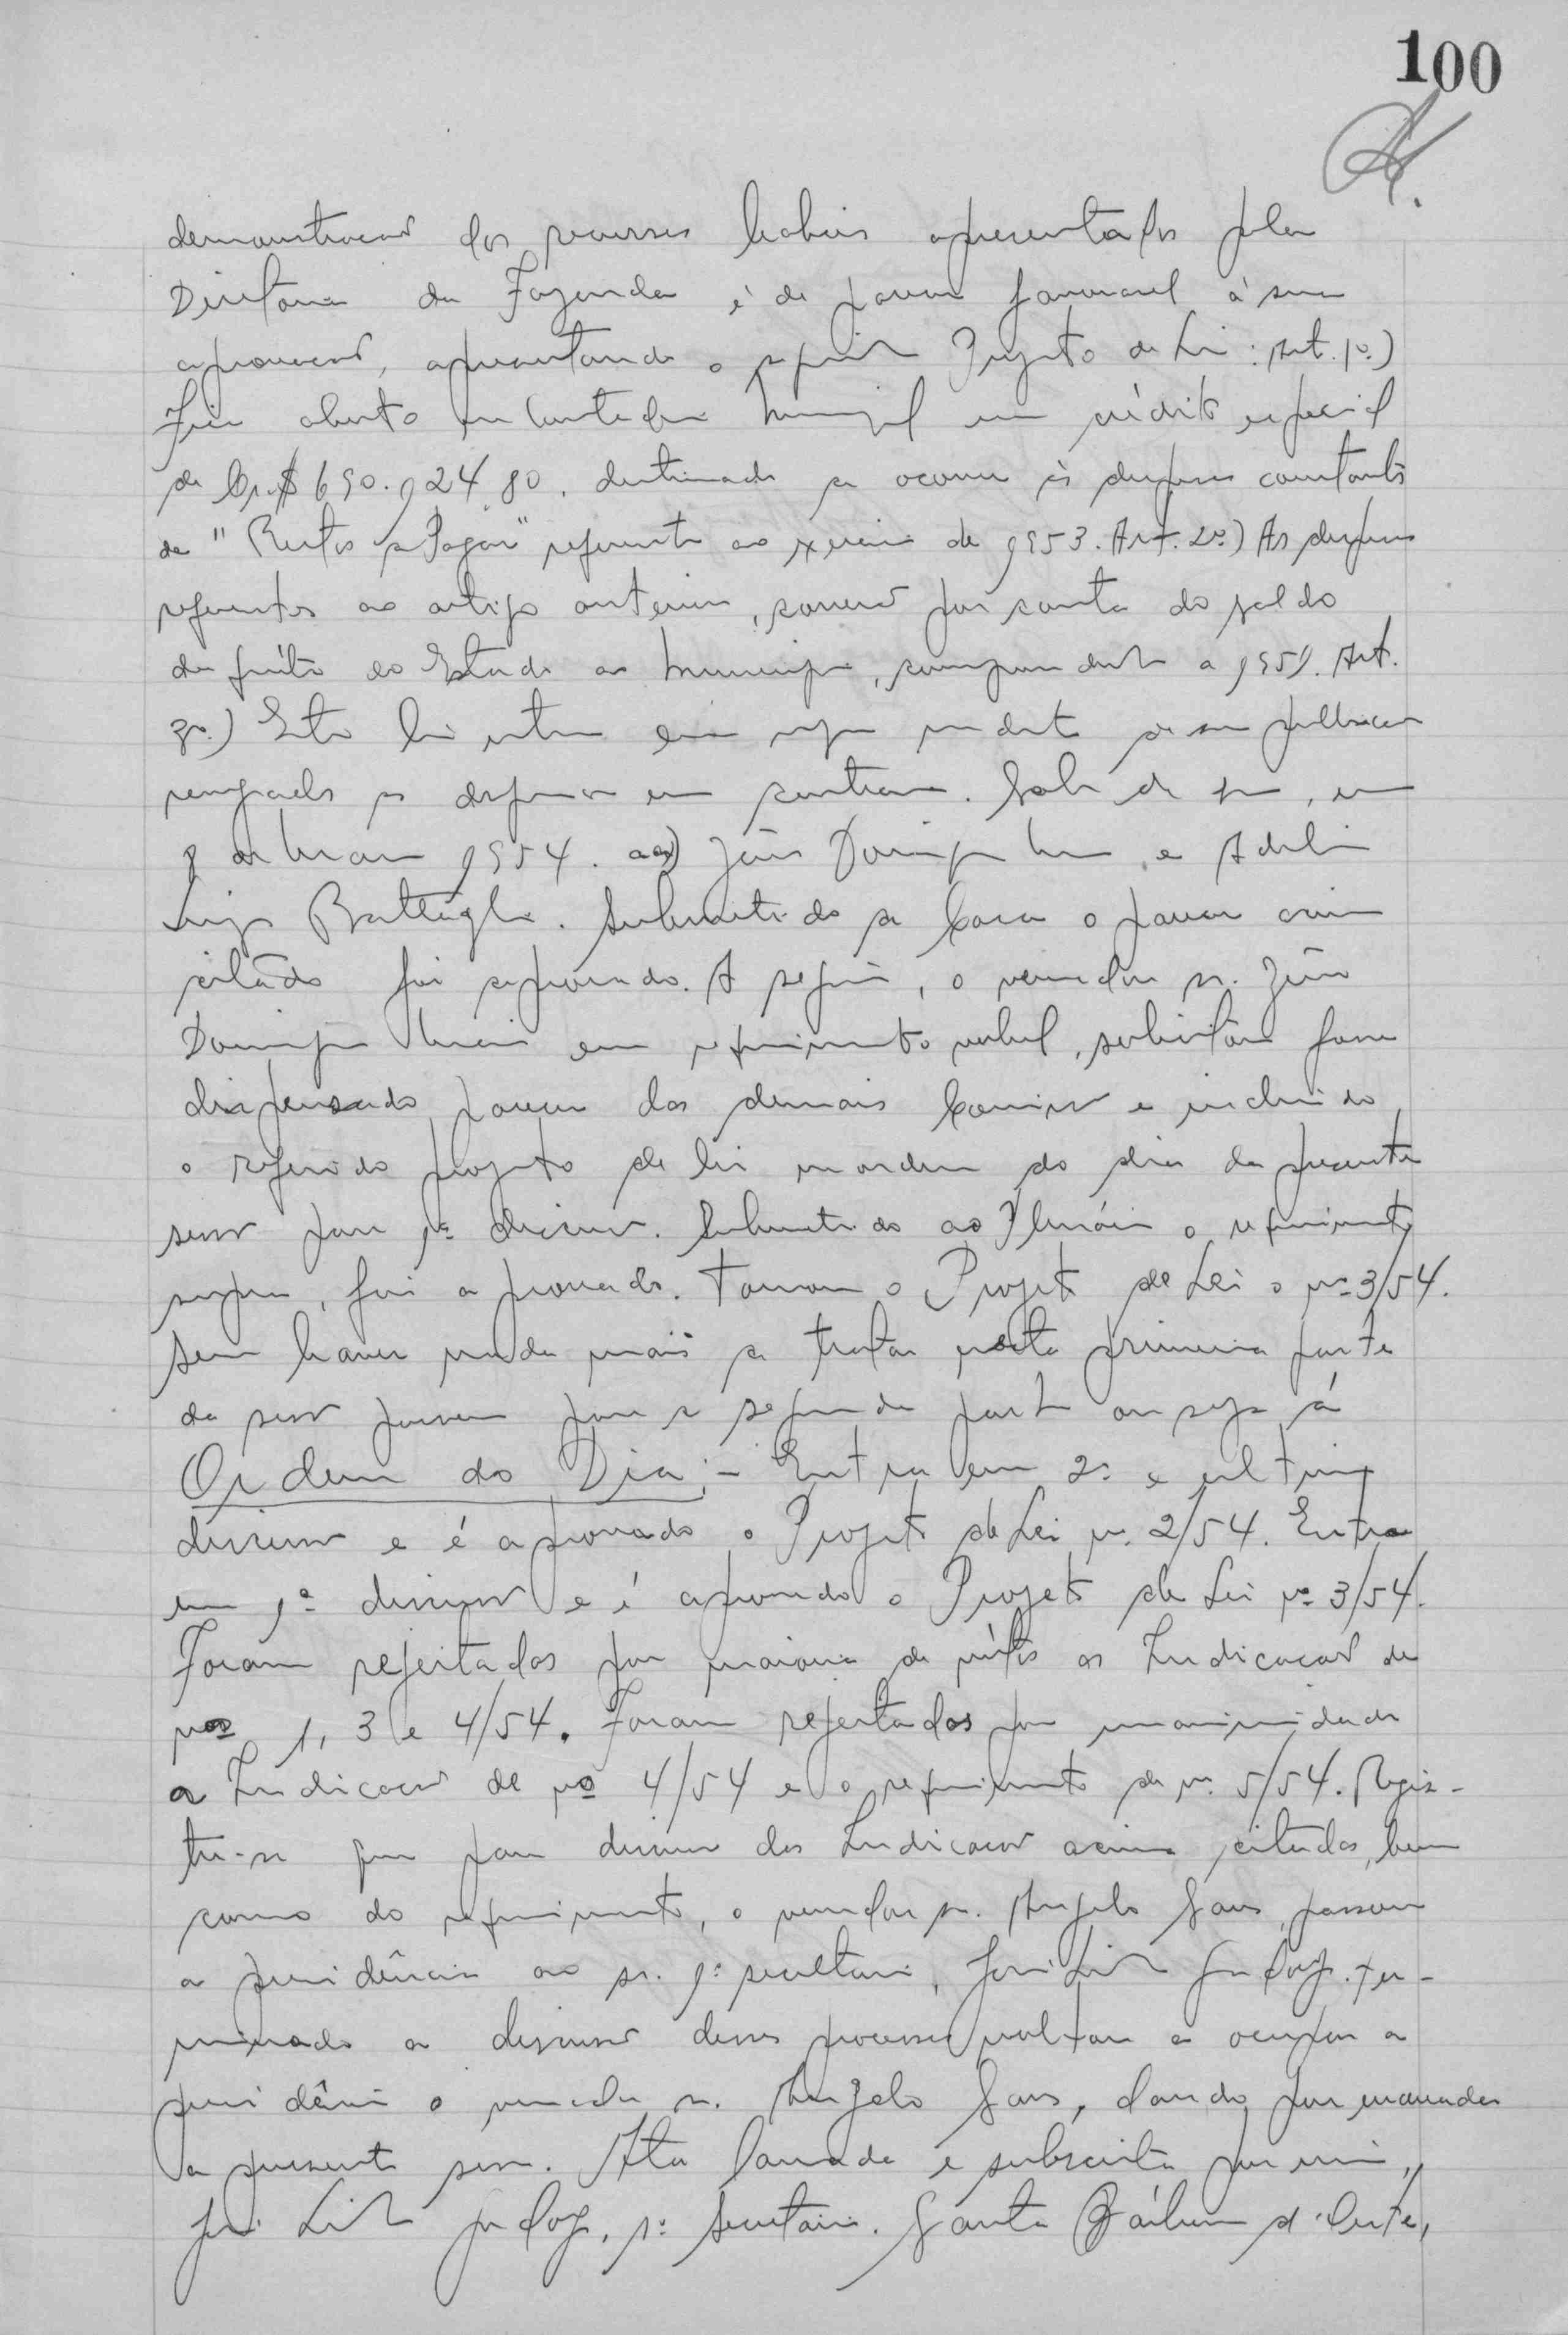 100
demonstração dos recursos habeis apresentados pela
Diretoria da Fazenda é de parecer favoravel á sua
aprovação, apresentando o seguinte Projeto de Lei: Art. 1º.)
Fica aberto na Contadoria Municipal um crédito especial
de Cr.$ 690.124 80, destinado a ocorrer ás despesas constantes
de "Restos a Pagar" referente ao exercicio de 1953. Art. 2º.) As despesas
referentes ao artigo anterior, correrá por conta do saldo
do Estado ao Municipio, correspondente a 1951. Art.
3º.) Esta lei entra em vigor na data de sua publicação
revogadas as disposições em contrario. Sala de Sessões, em
8 de Março 1954. aa) João Domingues e
Luiz Battagli. Submetido a Casa o parecer acima
citado foi aprovado. A seguir, o vereador sr. João
Domingues em requerimento verbal, solicitou fosse
dispensado parecer das demais Comissões e incluido
o referido projeto de lei na ordem do dia da presente
sessão para 1ª discussão. Submetido ao Plenário o requerimento
supra, foi aprovado. Tomou o Projeto de Lei o nº 3/54.
Sem haver nada mais a tratar nesta primeira parte
da sessão passou para a segunda parte ou seja á
Ordem do Dia:- Entra em 2ª e ultima
discussão e é aprovado o Projeto de Lei nº. 2/54. Entra
em 1ª discussão e é aprovado o Projeto de Lei nº 3/54.
Foram rejeitadas por maioria de vótos as Indicações de
nos 1, 3 e 4/54. Foram rejeitados por unanimidade
a Indicação de nº 4/54 e o requerimento de nº. 5/54. Regis-
tre-se que para discussão das Indicações acima citadas, bem
como do requerimento, o vereador sr. Angelo Sans, passou
a presidência ao sr. 1º secretario, José Lino. Ter-
minada a discussão desses processos voltou a ocupar a
presidência o vereador sr. Angelo Sans, dando por encerrada
a presente sessão. Ata lavrada e subscrita por mim,
1º Secretario. Santa Bárbara d'Oeste,